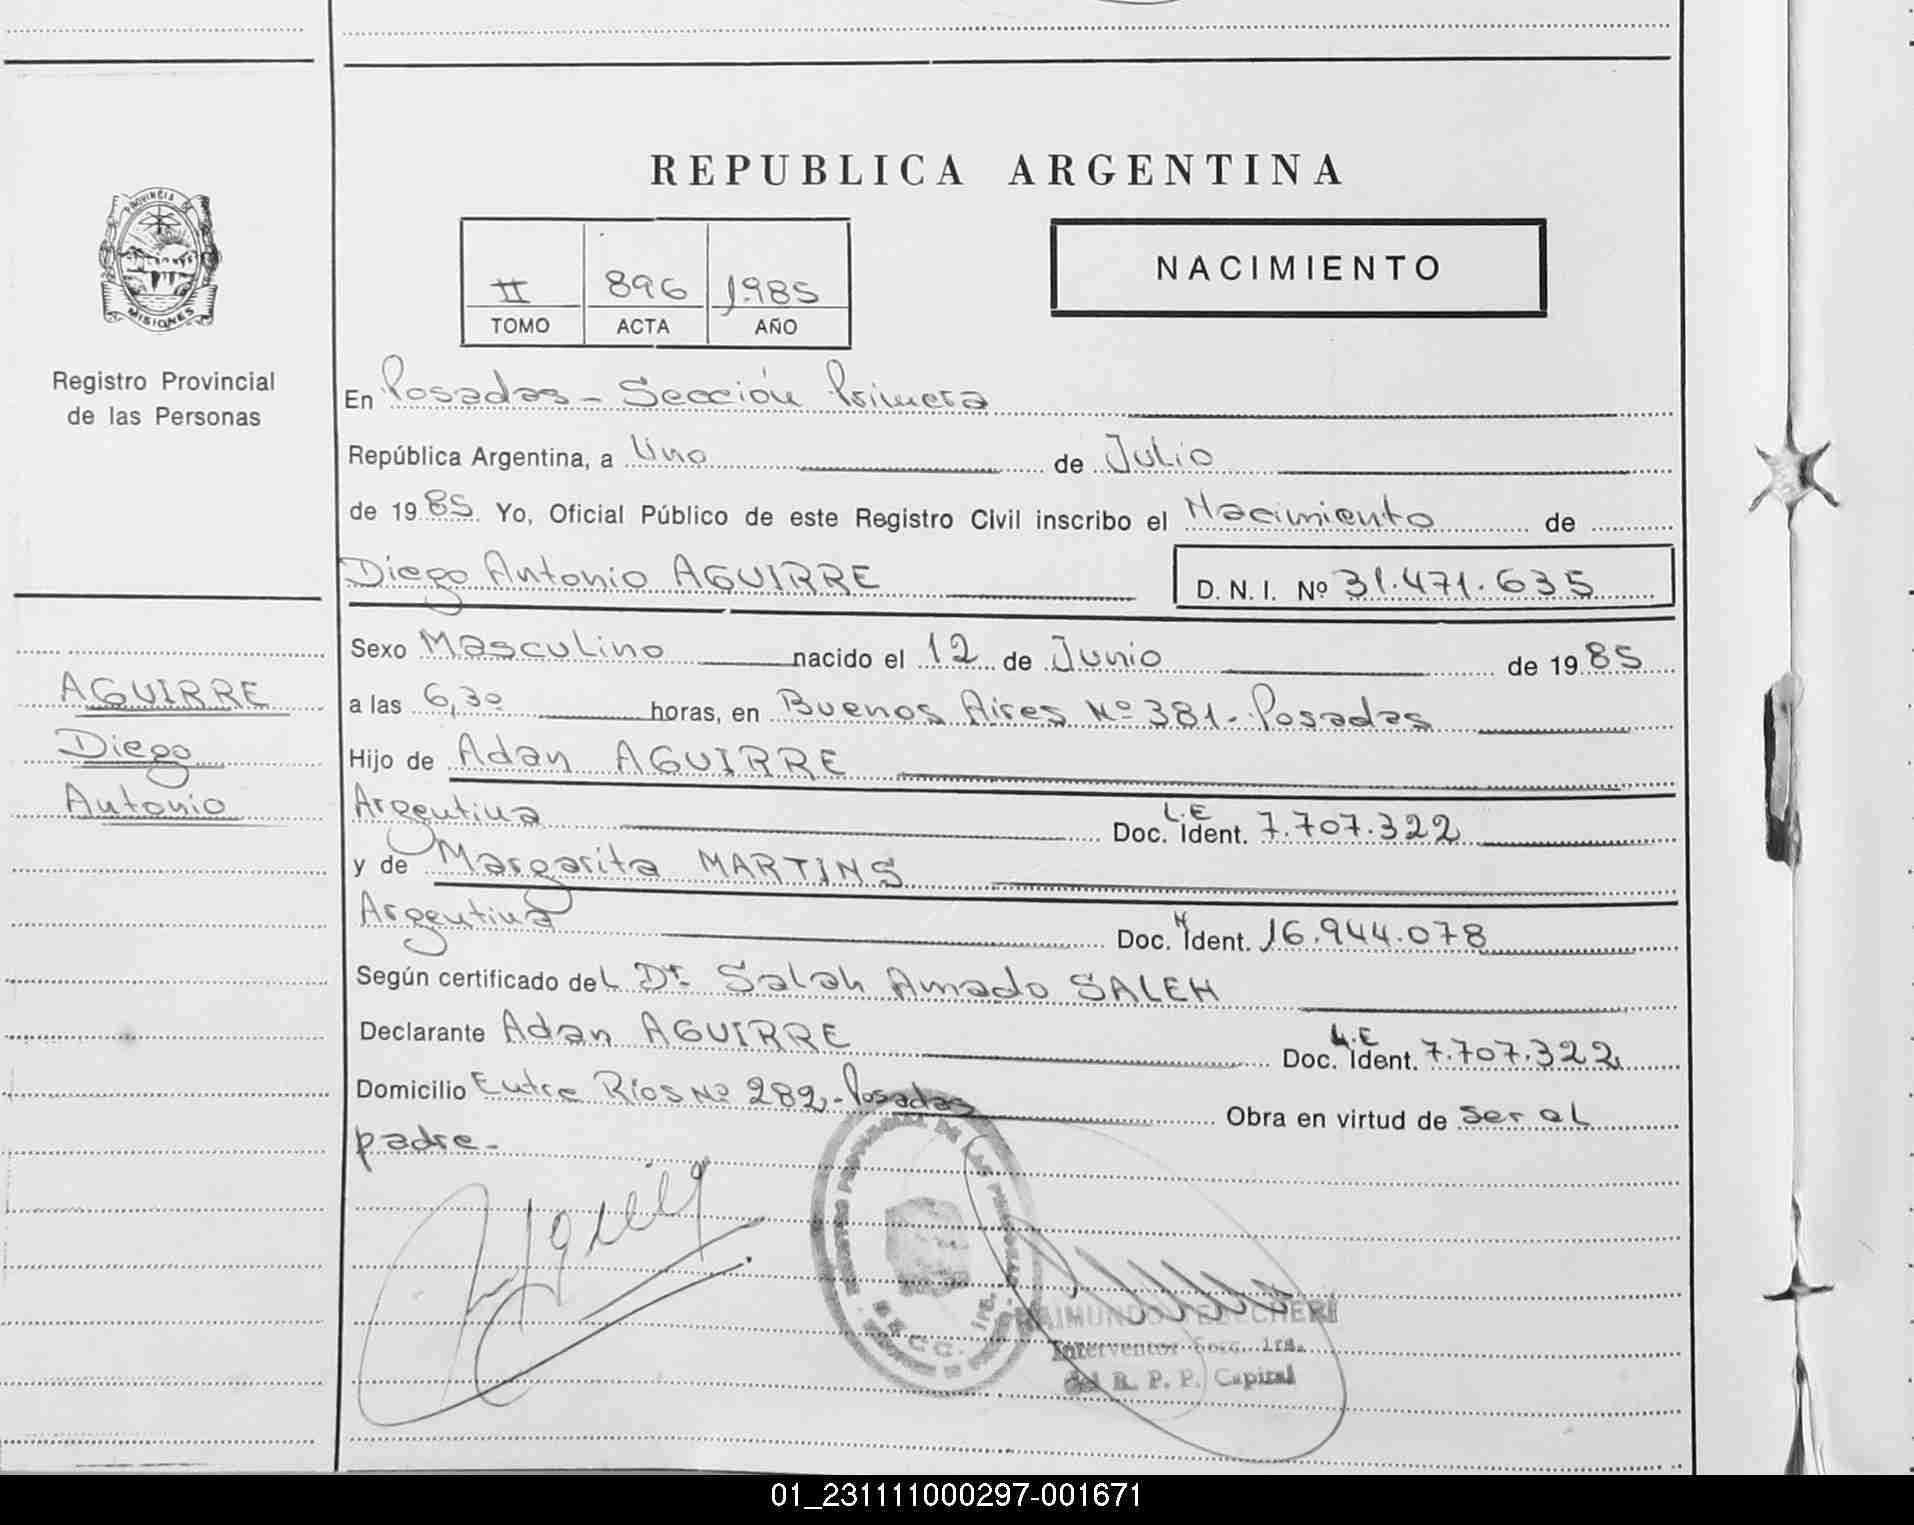 REPUBLICA ARGENTINA
PROVINCIA DE
MISIONES
Registro Provincial
de las Personas
II 896 1985
TOMO ACTA AÑO
NACIMIENTO
En Posadas - Sección Primera
República Argentina, a Uno de Julio
de 1985 Yo, Oficial Público de este Registro Civil inscribo el Nacimiento de
Diego Antonio AGUIRRE D.N.I. Nº 31.471.635
Sexo Masculino nacido el 12 de Junio de 1985
a las 6,30 horas, en Buenos Aires Nº 381 - Posadas
Hijo de Adan AGUIRRE
Argentina Doc. Ident. L.E 7.707.322
y de Margarita MARTINS
Argentina Doc. Ident. 16.944.078
Según certificado del Dr. Salah Amado SALEH
Declarante Adan AGUIRRE Doc. Ident. L.E 7.707.322
Domicilio Entre Ríos Nº 282,- Posadas Obra en virtud de ser el
padre -
AGUIRRE
Diego
Antonio
REGISTRO PROVINCIAL DE LAS PERSONAS
Interventor Secc. 1ra.
del R. P. P. Capital
01_231111000297-001671